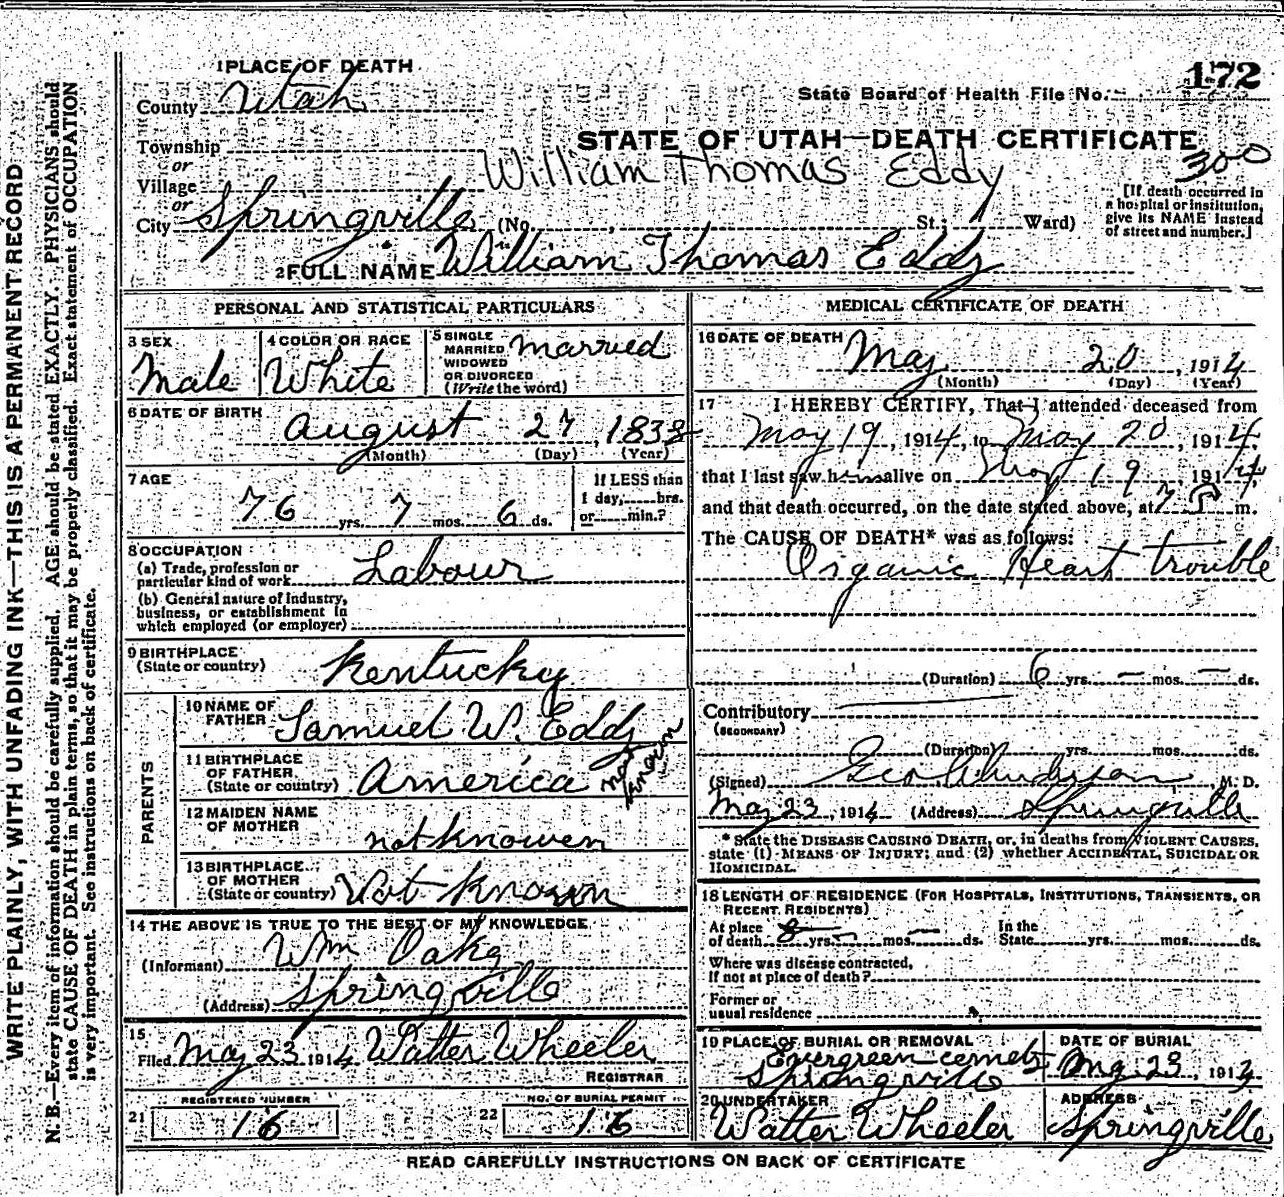 WRITE PLAINLY, WITH UNFADING INK—THIS IS A PERMANENT RECORD
N. B.—Every item of information should be carefully supplied. AGE should be stated EXACTLY. PHYSICIANS should
state CAUSE OF DEATH in plain terms, so that it may be properly classified. Exact statement of OCCUPATION
is very important. See instructions on back of certificate.
1 PLACE OF DEATH
172
County Utah
State Board of Health File No.
STATE OF UTAH—DEATH CERTIFICATE
Township
or
William Thomas Eddy
300
Village
or
[If death occurred in
a hospital or institution,
give its NAME instead
of street and number.]
City Springville (No. , St.; Ward)
2 FULL NAME William Thomas Eddy
PERSONAL AND STATISTICAL PARTICULARS
3 SEX
Male
4 COLOR OR RACE
White
5 SINGLE
MARRIED
WIDOWED
OR DIVORCED
(Write the word)
married
6 DATE OF BIRTH
August 27, 1838
(Month) (Day) (Year)
7 AGE
76 yrs. 7 mos. 6 ds.
If LESS than
1 day, hrs.
or min.?
8 OCCUPATION
(a) Trade, profession or
particular kind of work Labour
(b) General nature of industry,
business, or establishment in
which employed (or employer)
9 BIRTHPLACE
(State or country) Kentucky
PARENTS
10 NAME OF
FATHER Samuel W. Eddy
11 BIRTHPLACE
OF FATHER
(State or country) America not known
12 MAIDEN NAME
OF MOTHER
not knowen
13 BIRTHPLACE
OF MOTHER
(State or country) Not Known
14 THE ABOVE IS TRUE TO THE BEST OF MY KNOWLEDGE
(Informant) Wm Oakes
(Address) Springville
15
Filed May 23 1914 Walter Wheeler
REGISTRAR
REGISTERED NUMBER
21 16
NO. OF BURIAL PERMIT
22 16
MEDICAL CERTIFICATE OF DEATH
16 DATE OF DEATH
May 20, 1914
(Month) (Day) (Year)
17 I HEREBY CERTIFY, That I attended deceased from
May 19, 1914, to May 20, 1914,
that I last saw him alive on May 19, 1914,
and that death occurred, on the date stated above, at 7 m.
The CAUSE OF DEATH* was as follows:
Organic Heart trouble
(Duration) 6 yrs. — mos. — ds.
Contributory
(SECONDARY)
(Duration) yrs. mos. ds.
(Signed) Geo Anderson M. D.
May 23, 1914 (Address) Springville
* State the DISEASE CAUSING DEATH, or, in deaths from VIOLENT CAUSES,
state (1) MEANS OF INJURY; and (2) whether ACCIDENTAL, SUICIDAL OR
HOMICIDAL.
18 LENGTH OF RESIDENCE (FOR HOSPITALS, INSTITUTIONS, TRANSIENTS, OR
RECENT RESIDENTS)
At place
of death 8 yrs. — mos. — ds.
In the
State yrs. mos. ds.
Where was disease contracted,
if not at place of death?
Former or
usual residence
19 PLACE OF BURIAL OR REMOVAL
Evergreen cemety
Springville
DATE OF BURIAL
May 23, 1914
20 UNDERTAKER
Walter Wheeler
ADDRESS
Springville
READ CAREFULLY INSTRUCTIONS ON BACK OF CERTIFICATE